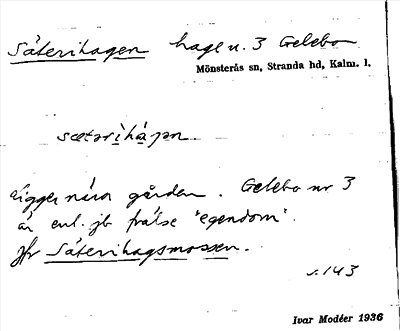 Säterihagen hage u. 3 Gelebo
Mönsterås sn, Stranda hd, Kalm. l.
sætərìhàgən
Ligger nära gården. Gelebo nr 3
är enl. jb frälse "egendom".
Jfr Säterihagsmossen.
s. 143
Ivar Modéer 1936